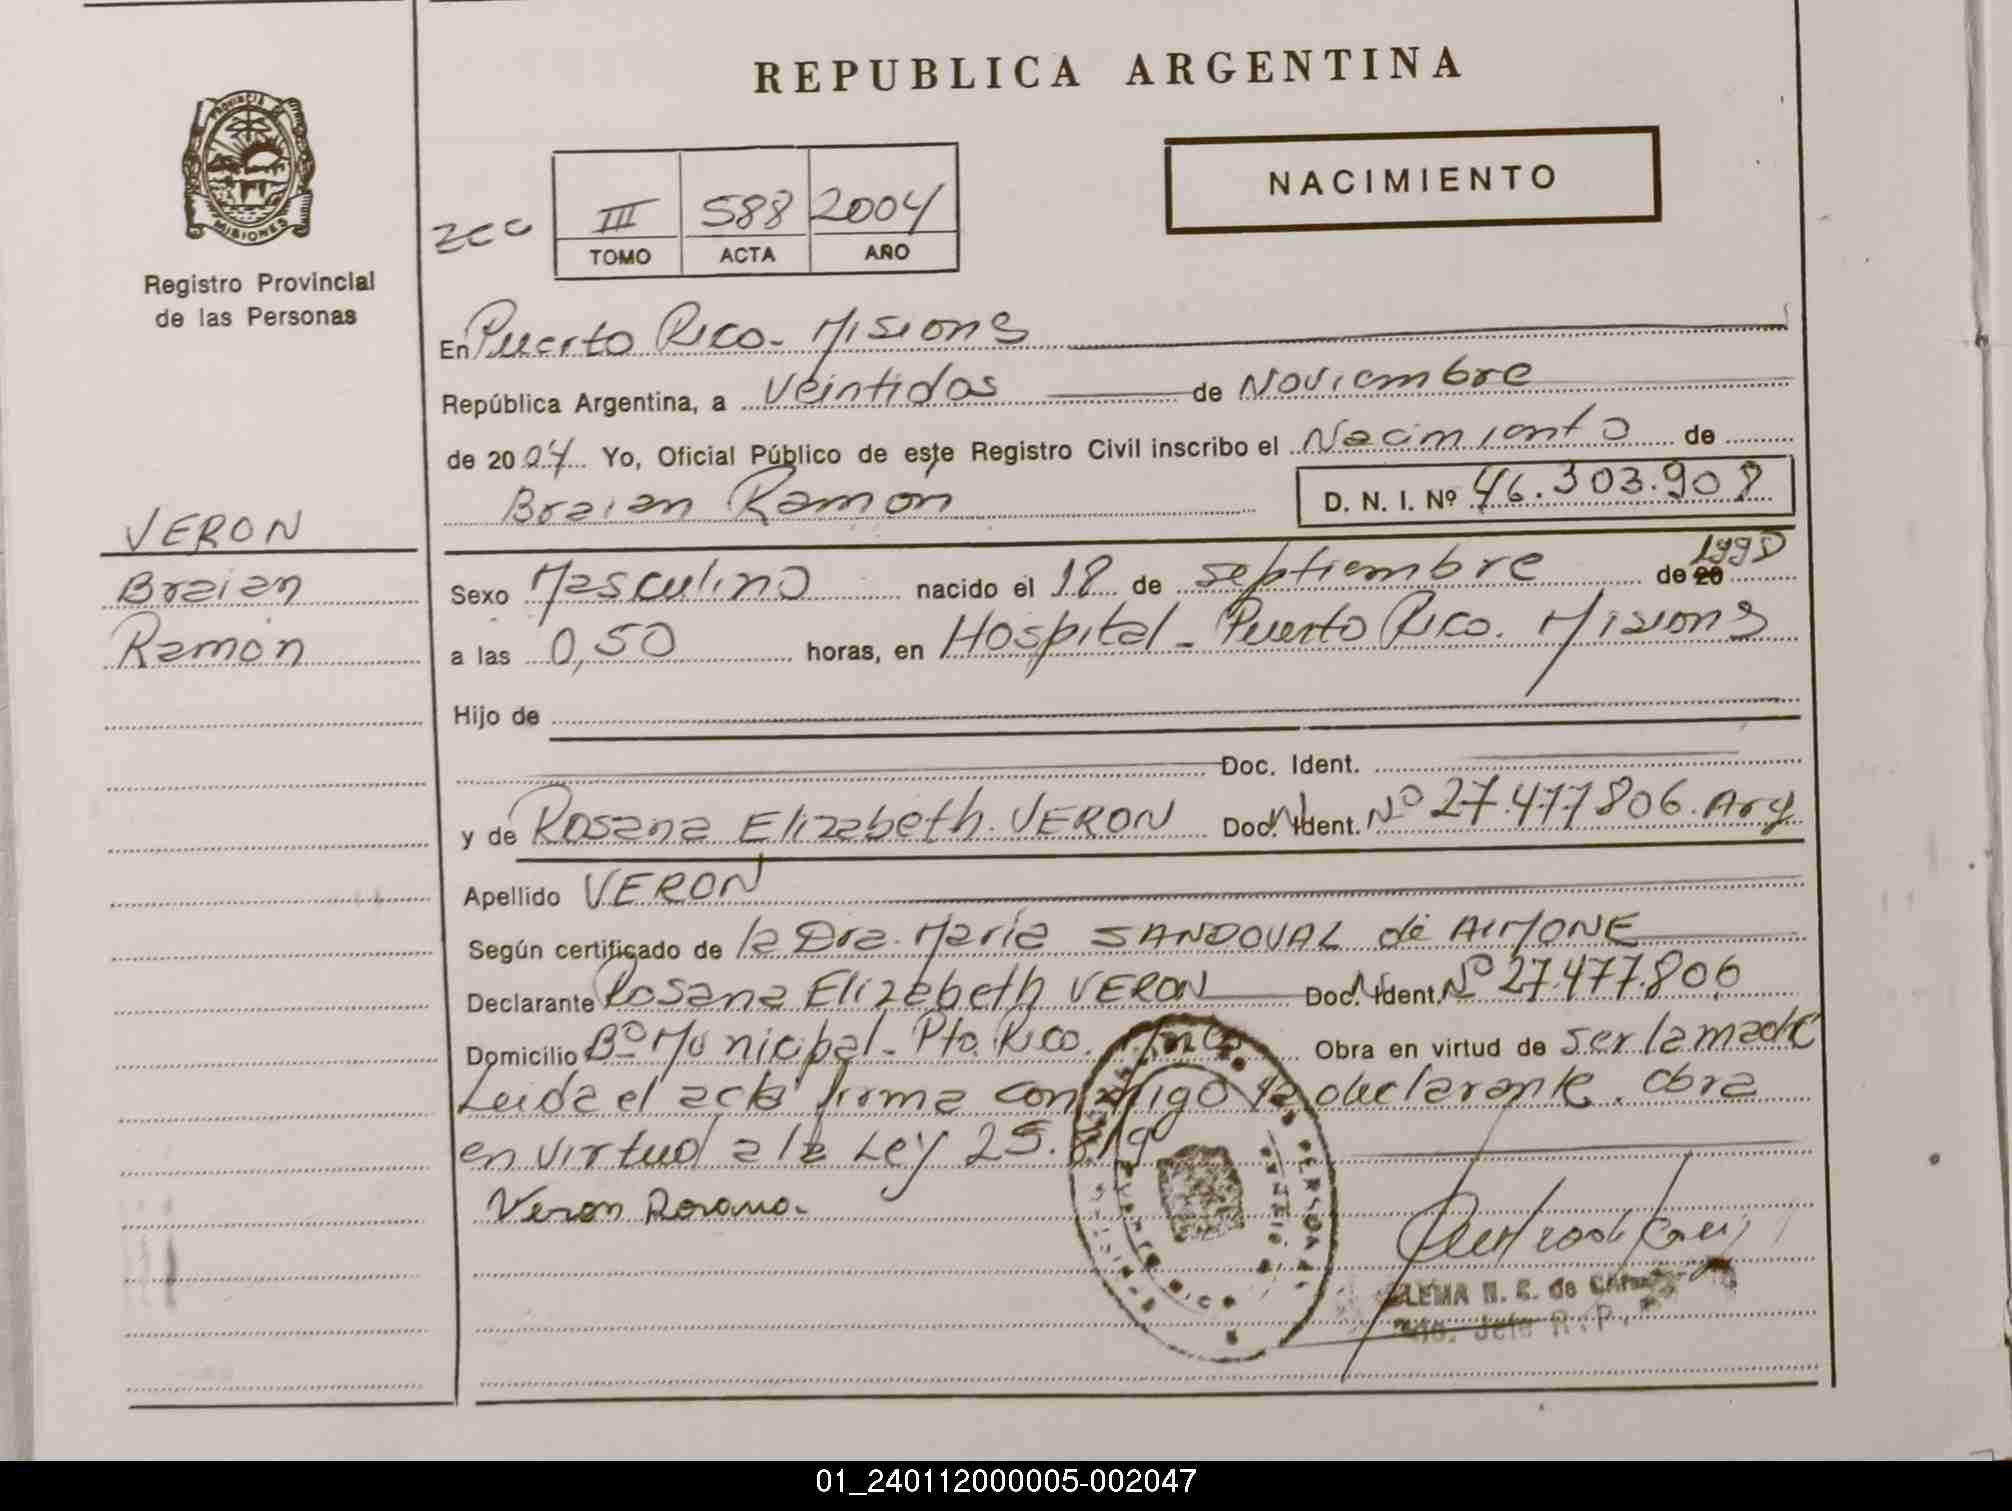 REPUBLICA ARGENTINA
PROVINCIA DE
MISIONES
Registro Provincial
de las Personas
NACIMIENTO
III 588 2004
TOMO ACTA AÑO
En Puerto Rico - Misions
República Argentina, a Veintidos de Noviembre
de 2004 Yo, Oficial Público de este Registro Civil inscribo el Nacimionto de
Braian Ramón D. N. I. Nº 46.303.908
VERON
Braian
Ramón
Sexo Masculino nacido el 18 de septiembre de 20 1998
a las 0,50 horas, en Hospital - Puerto Rico. Misions
Hijo de
Doc. Ident.
y de Rosana Elizabeth VERON Doc. Ident. Nº 27.477806. Arg
Apellido VERON
Según certificado de la Dra. María SANDOVAL de AIMONE
Declarante Rosana Elizabeth VERON Doc. Ident. Nº 27.477.806
Domicilio Bº Municipal - Pto. Rico. Mnes Obra en virtud de ser la madre
Leida el acta firma conmigo la declarante. Obra
en virtud a la Ley 25.819
Veron Rosana.
ZELMA N. E. de
Jefe R. P.
01_240112000005-002047